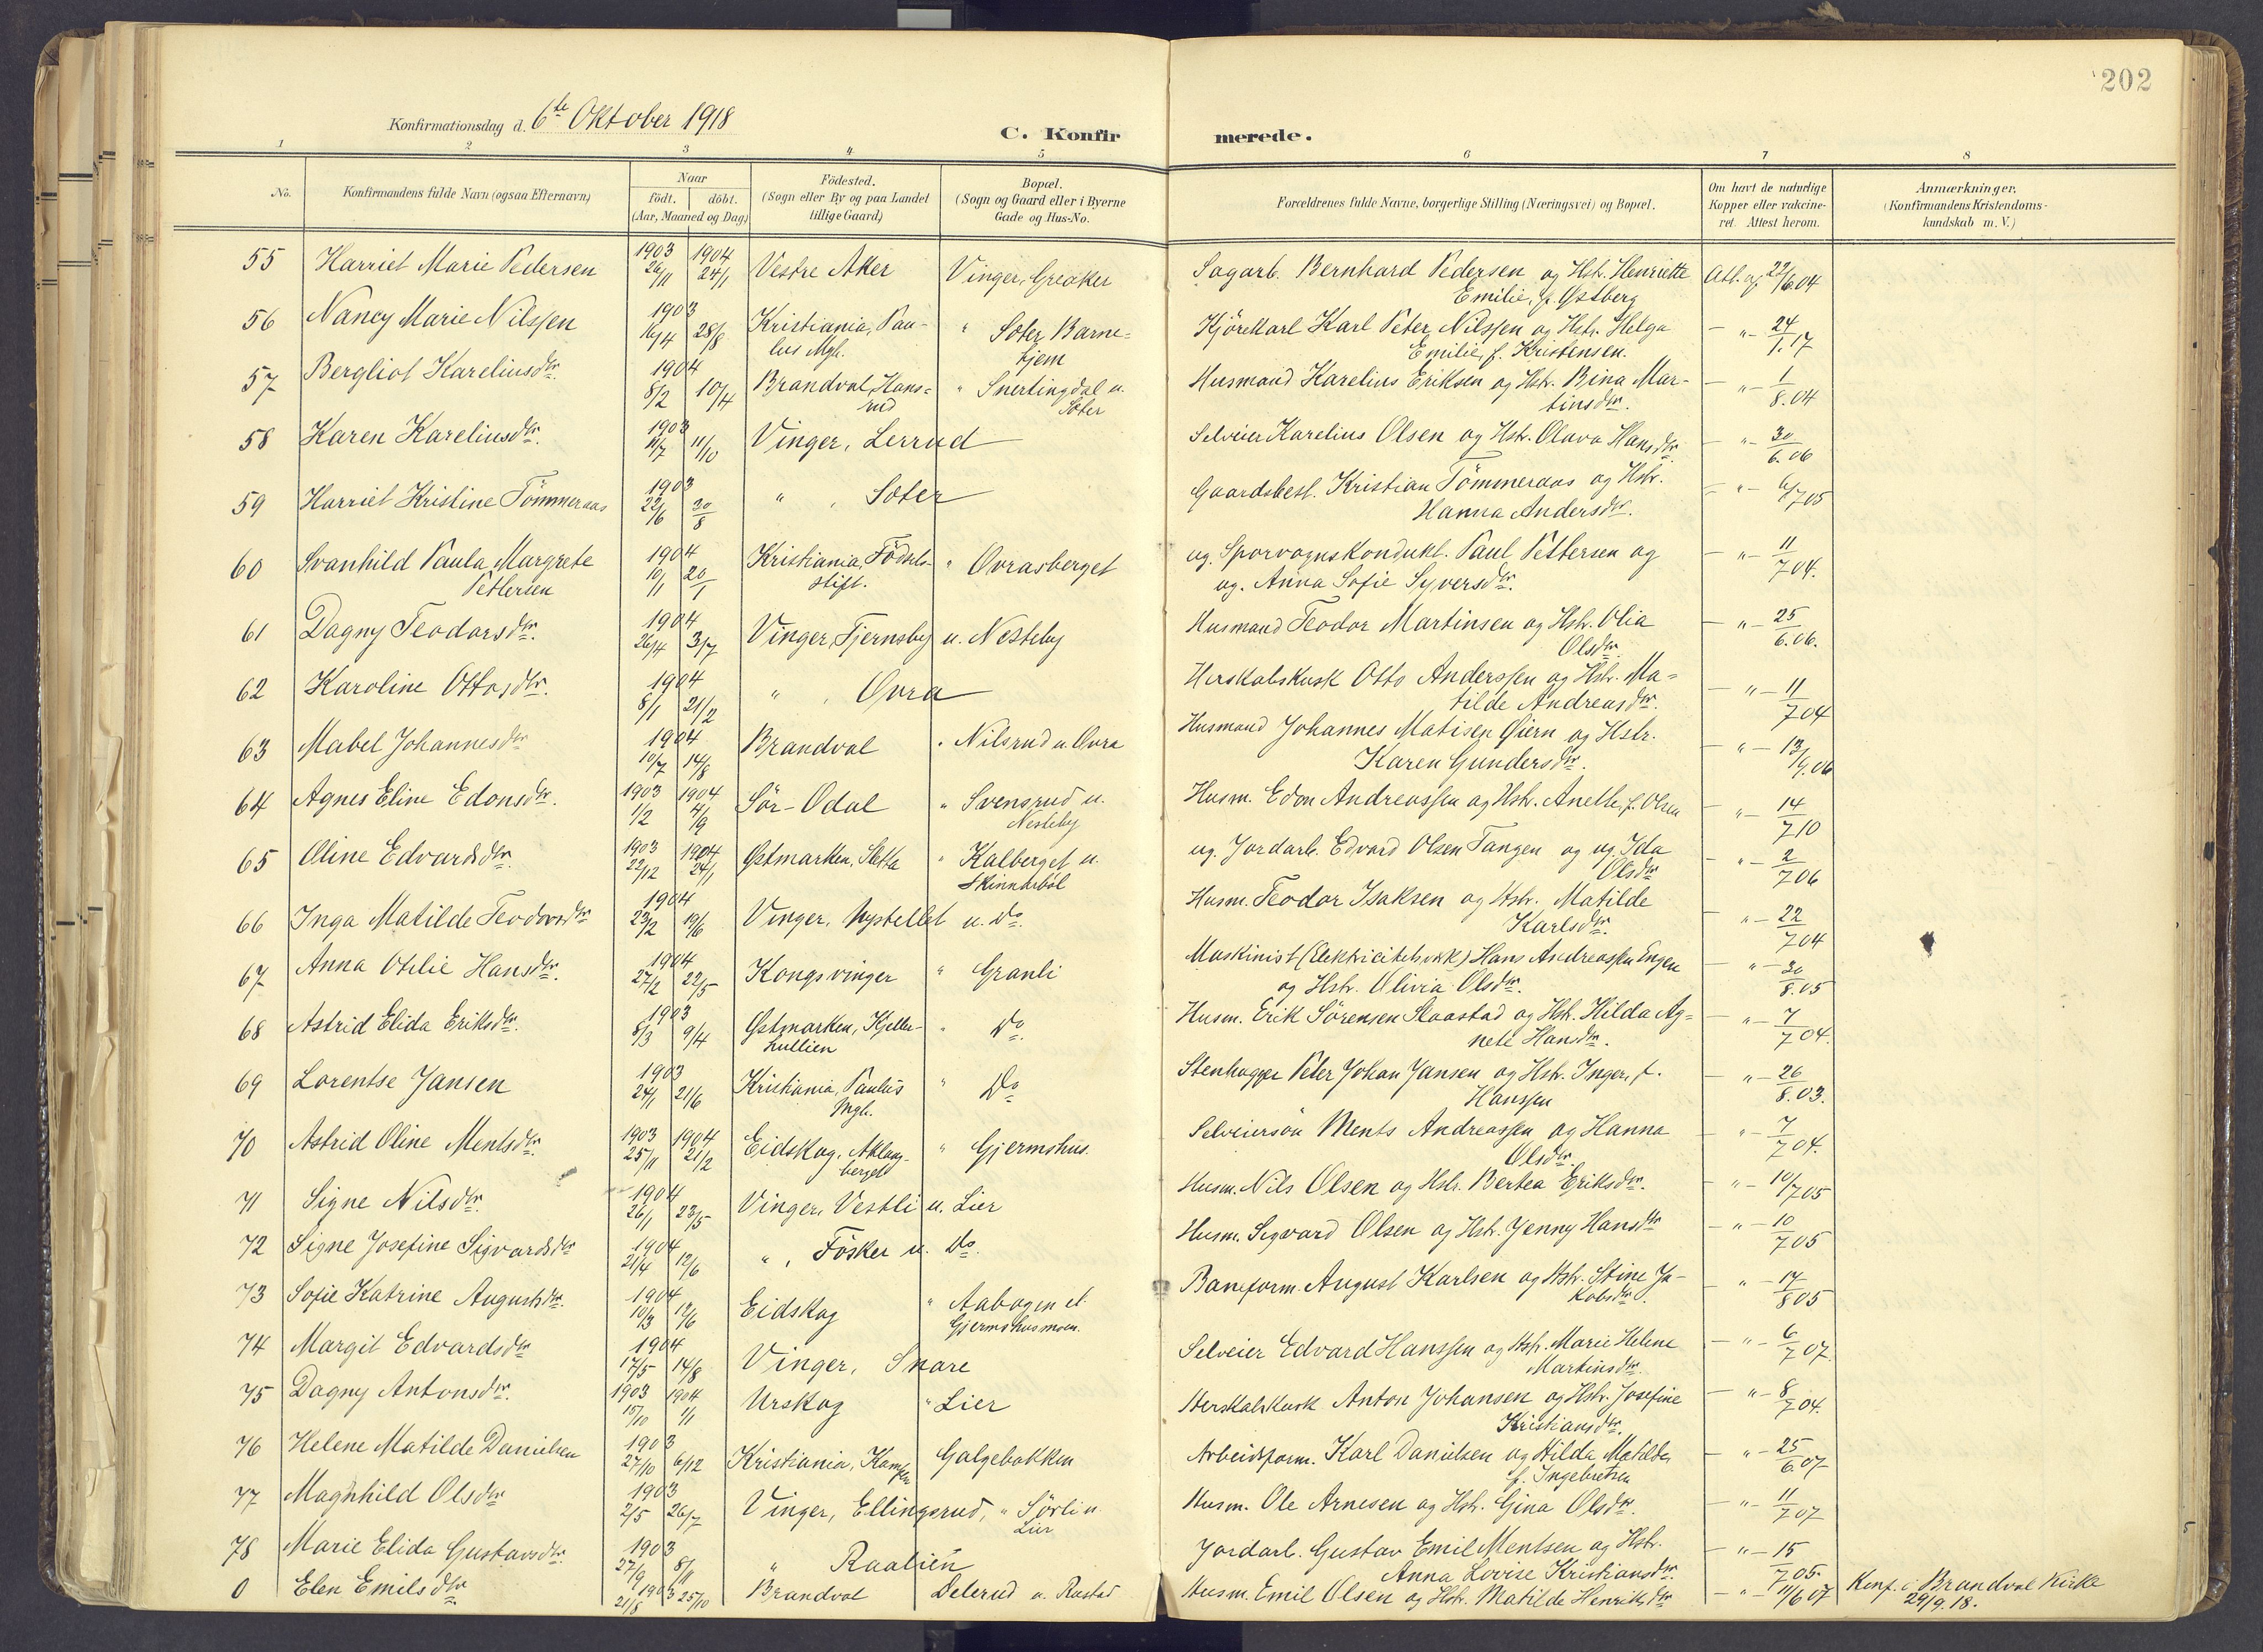 202
Konfirmationsdag d. 6te Oktober 1918
C. Konfir merede.
1 2 3 4 5 6 7 8
No.
Konfirmandens fulde Navn (ogsaa Efternavn)
Naar
födt. döbt.
(Aar, Maaned og Dag)
Födested.
(Sogn eller By og paa Landet
tillige Gaard)
Bopæl.
(Sogn og Gaard eller i Byerne
Gade og Hus-No.
Forældrenes fulde Navne, borgerlige Stilling (Næringsvei) og Bopæl.
Om havt de naturlige
Kopper eller vakcine-
ret. Attest herom.
Anmærkninger.
(Konfirmandens Kristendoms-
kundskab m. V.)
55 Harriet Marie Pedersen 1903 26/11 1904 24/1 Vestre Aker Vinger, Greaker Sagarb. Bernhard Pedersen og Hstr. Henriette Att. af 22/6 04
Emilie, f. Østberg
56 Nancy Marie Nilssen 1903 16/4 28/8 Kristiania, Pau- " Soter Barne- Kjörekarl Karl Peter Nilssen og Hstr. Helga — " — 24/1.17
lus Mgh. hjem Emilie, f. Kristensen.
57 Bergliot Kareliusdtr. 1904 8/2 10/4 Brandval, Hans- " Snertingdal u. Husmand Karelius Eriksen og Hstr. Bina Mar- — " — 1/8.04
rud Soter tinsdtr.
58 Karen Kareliusdtr. 1903 11/7 11/10 Vinger, Lerrud Selveier Karelius Olsen og Hstr. Olava Hansdtr. — " — 30/6.06
59 Harriet Kristine Tömmeraas 1903 22/6 30/8 " , Soter Gaardsbest. Kristian Tömmeraas og Hstr. — " — 6/7 05
Hanna Andersdtr.
60 Svanhild Paula Margrete 1904 10/1 20/1 Kristiania, Födsels- " Ovrasberget ug. Sporvognskondukt. Paul Pettersen og — " — 11/7 04.
Pettersen stift. ug. Anna Sofie Syversdtr.
61 Dagny Teodorsdtr. 1904 26/4 3/7 Vinger, Tjernsby u. Nesteby Husmand Teodor Martinsen og Hstr. Olia — " — 25/6.06.
Olsdtr.
62 Karoline Ottosdtr. 1904 8/1 21/2 " , Ovra Herskabskusk Otto Anderssen og Hstr. Ma- — " — 11/7 04
tilde Andreasdtr.
63 Mabel Johannesdtr 1904 10/7 14/8 Brandval " Nilsrud u. Ovra Husmand Johannes Matisen Øiern og Hstr. — " — 13/9.06
Karen Gundersdtr.
64 Agnes Eline Edonsdtr. 1903 1/2 1904 4/9 Sör-Odal " Svensrud u. Husm. Edon Andreassen og Hstr. Anette, f. Olsen — " — 14/7 10
Nesteby
65 Oline Edvardsdtr. 1903 22/12 1904 24/1 Østmarken, Sletta " Kalberget u. ug. Jordarb. Edvard Olsen Tangen og ug. Ida — " — 2/7 06
Skinnarböl Olsdtr
66 Inga Matilde Teodorsdtr 1904 23/2 19/6 Vinger, Nystellet u. Do. Husm. Teodor Isaksen og Hstr. Matilde — " — 22/7 04
Karlsdtr.
67 Anna Otilie Hansdtr. 1904 27/2 22/5 Kongsvinger " Granli Maskinist (Elektricitetsverk) Hans Andreassen Engen — " — 30/8.05
og Hstr. Olivia Olsdtr.
68 Astrid Elida Eriksdtr. 1903 8/3 9/4 Østmarken, Kjeller- " Do. Husm. Erik Sörensen Slaastad og Hstr. Hilda Ag- — " — 7/7 04.
hullien nete Hansdtr.
69 Lorentse Jansen 1903 24/1 21/6 Kristiania, Paulus " Do Stenhugger Peter Johan Jansen og Hstr. Inger, f. — " — 26/8.03.
Mgh. Hanssen
70 Astrid Oline Mentsdtr. 1903 25/11 1904 21/2 Eidskog, Aklang- " Gjermshus. Selveiersön Ments Andreassen og Hanna — " — 7/7 04.
berget Olsdtr.
71 Signe Nilsdtr. 1904 26/1 23/5 Vinger, Vestli u. Lier Husm. Nils Olsen og Hstr. Bertea Eriksdtr. — " — 10/7 05
72 Signe Josefine Sigvardsdtr 1904 21/4 12/6 " , Fösker u. Do. Husm. Sigvard Olsen og Hstr. Jenny Hansdtr — " — 10/7 05
73 Sofie Katrine Augustsdtr. 1904 10/3 12/6 Eidskog " Aabogen el. Baneform. August Karlsen og Hstr. Stine Ja- — " — 17/8 05
Gjermshusmoen. kobsdtr.
74 Margit Edvardsdtr 1904 17/5 14/8 Vinger, Snare Selveier Edvard Hanssen og Hstr. Marie Helene — " — 6/7 07.
Martinsdtr.
75 Dagny Antonsdtr. 1903 15/10 1904 1/1 Urskog " Lier Herskabskusk Anton Johansen og Hstr. Josefine — " — 8/7 04.
Kristiansdtr.
76 Helene Matilde Danielsen 1903 27/10 6/12 Kristiania, Kampen Galgebakken Arbeidsform. Karl Danielsen og Hilda Matilde, — " — 25/6 07
f. Ingebretsen
77 Magnhild Olsdtr 1903 2/5 26/7 Vinger, Ellingsrud, " Sörli u. Husm. Ole Arnesen og Hstr. Gina Olsdtr. — " — 11/7 07
Lier
78 Marie Elida Gustavsdtr. 1903 27/9 8/11 " Raalien Jordarb. Gustav Emil Mentsen og Hstr. — " — 15/7 05.
Anna Lovise Kristiansdtr.
0 Elen Emilsdtr 1903 21/8 25/10 Brandval Delerud u. Rastad Husm. Emil Olsen og Hstr. Matilde Henriksdtr — " — 11/6 07 Konf. i Brandval Kirke
29/9.18.